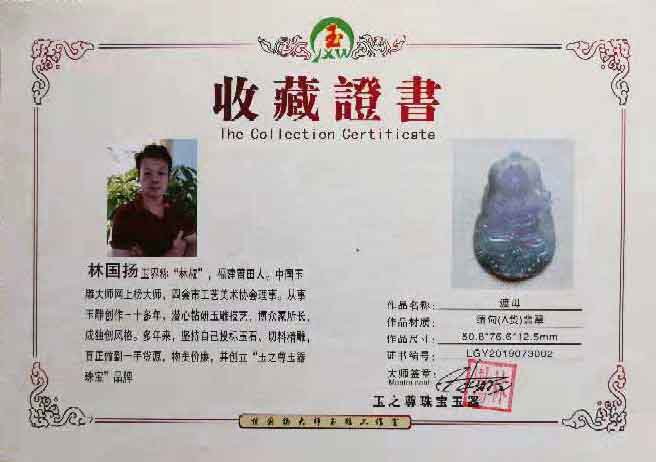 玉
JXW
收藏證書
The Collection Certificate
林国扬 玉界称“林叔”，福建莆田人。中国玉
雕大师网上榜大师，四会市工艺美术协会理事。从事
玉雕创作一十多年，潜心钻研玉雕技艺，博众家所长，
成独创风格。多年来，坚持自己投标玉石、切料精雕，
真正做到一手货源，物美价廉，并创立“玉之尊玉器
珠宝”品牌
作品名称：渡母
作品材质：缅甸(A货)翡翠
作品尺寸：50.8*76.6*12.5mm
证书编号：LGY2019073002
大师签章：
玉之尊珠宝玉器
林国扬大师玉雕工作室